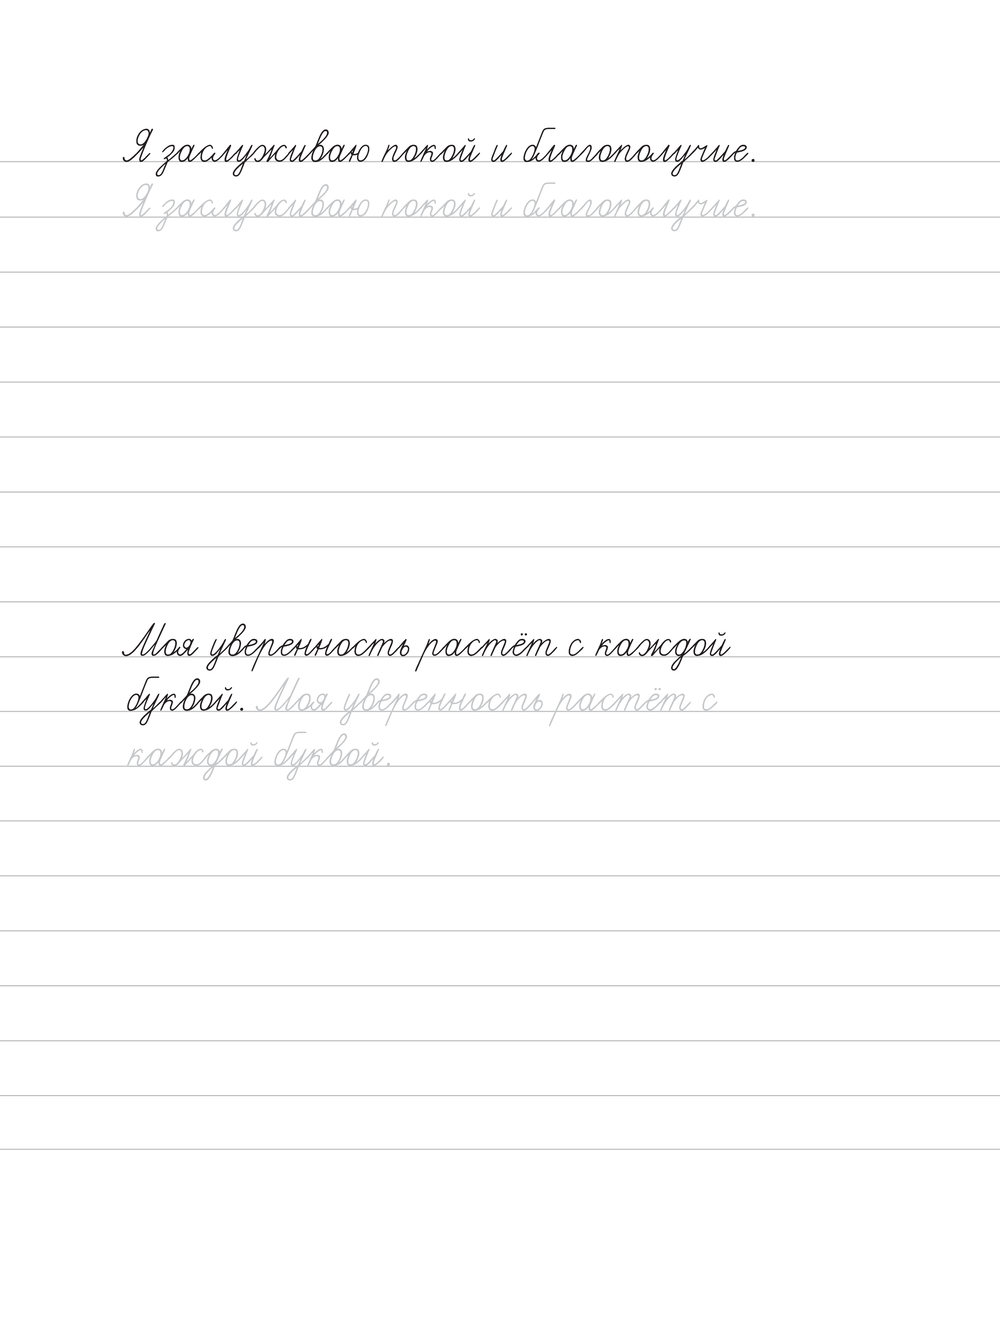 Я заслуживаю покой и благополучие.
Я заслуживаю покой и благополучие.
Моя уверенность растёт с каждой
буквой. Моя уверенность растёт с
каждой буквой.